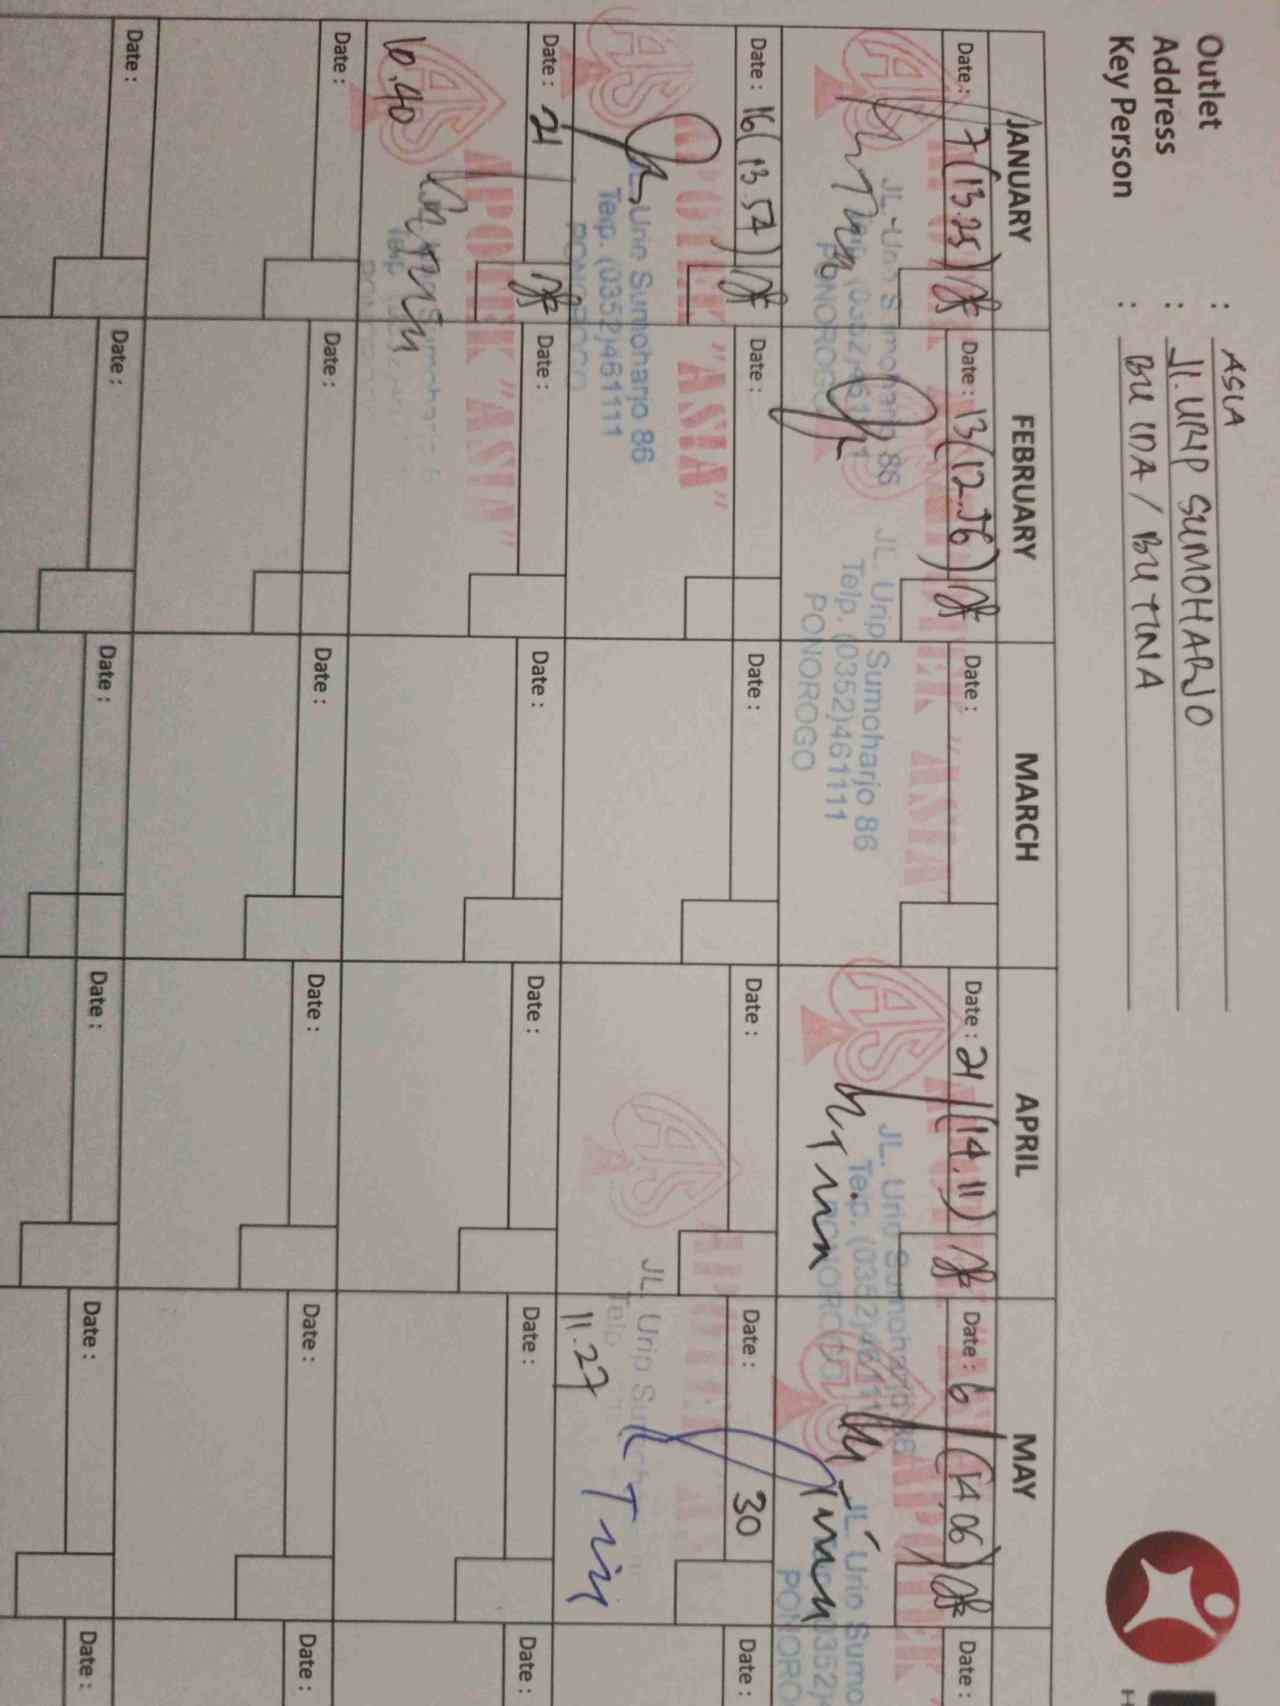 Outlet : ASIA
Address : Jl. URIP SUMOHARJO
Key Person : BU IDA / BU TINA
JANUARY FEBRUARY MARCH APRIL MAY
Date : 7 (13.25) Date : 13 (12.56) Date : Date : 21 (14.11) Date : 6 (14.06) Date :
APOTEK "ASIA"
JL. Urip Sumoharjo 86
Telp. (0352)461111
PONOROGO
Date : 16 (13.54) Date : Date : Date : Date : 30 Date :
APOTEK "ASIA"
JL. Urip Sumoharjo 86
Telp. (0352)461111
PONOROGO
11.27
Tin
Date : 21 Date : Date : Date : Date : Date :
10.40
APOTEK "ASIA"
Date : Date : Date : Date : Date : Date :
Date : Date : Date : Date : Date : Date :